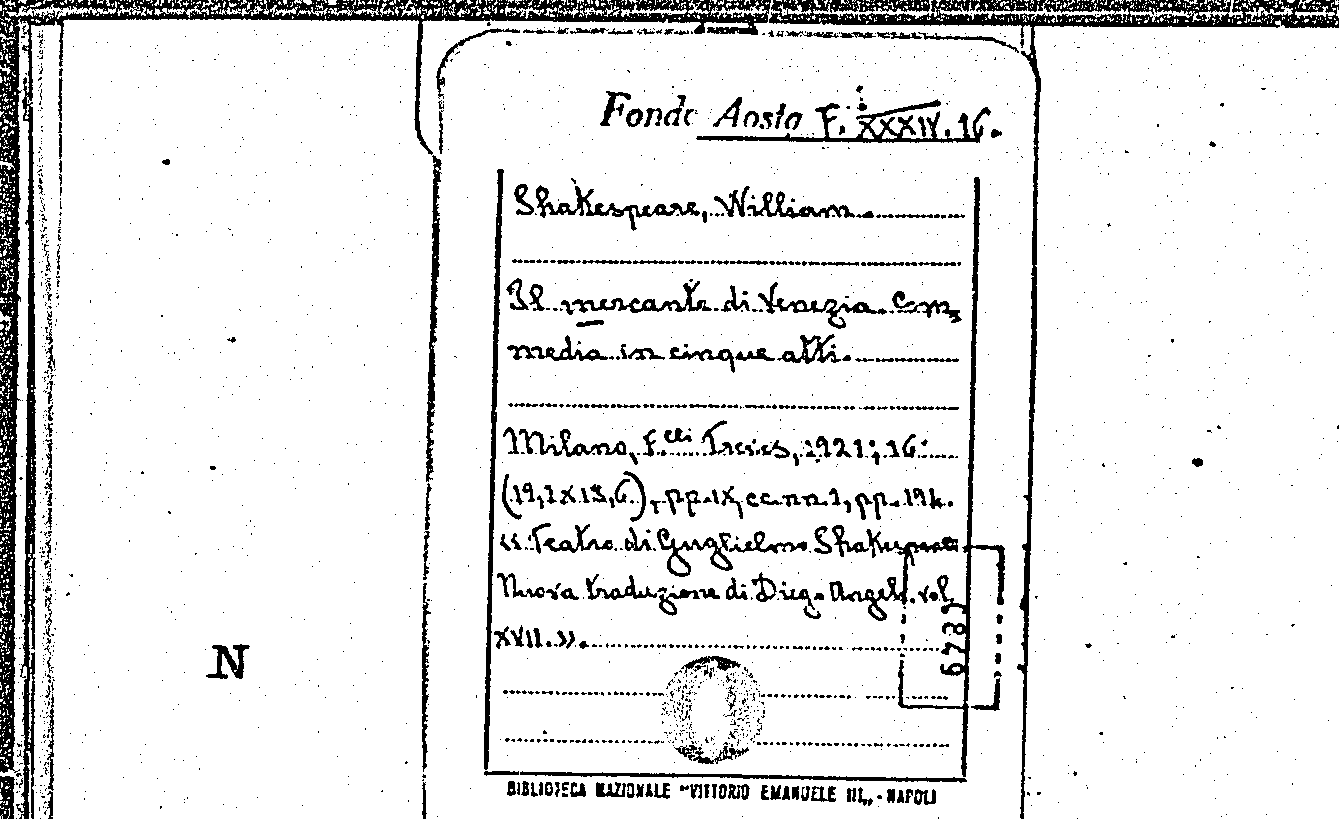 Fondo Aosta F. XXXIV. 16.
Shakespeare, William.
Il mercante di Venezia. Com=
media in cinque atti.
Milano, F.lli Treves, 1921; 16°
(19,2x13,6), pp. IX, cc. nn. 1, pp. 194.
«Teatro di Guglielmo Shakespeare
Nuova traduzione di Diego Angeli. vol.
XVII.».
N
BIBLIOTECA NAZIONALE "VITTORIO EMANUELE III„ - NAPOLI